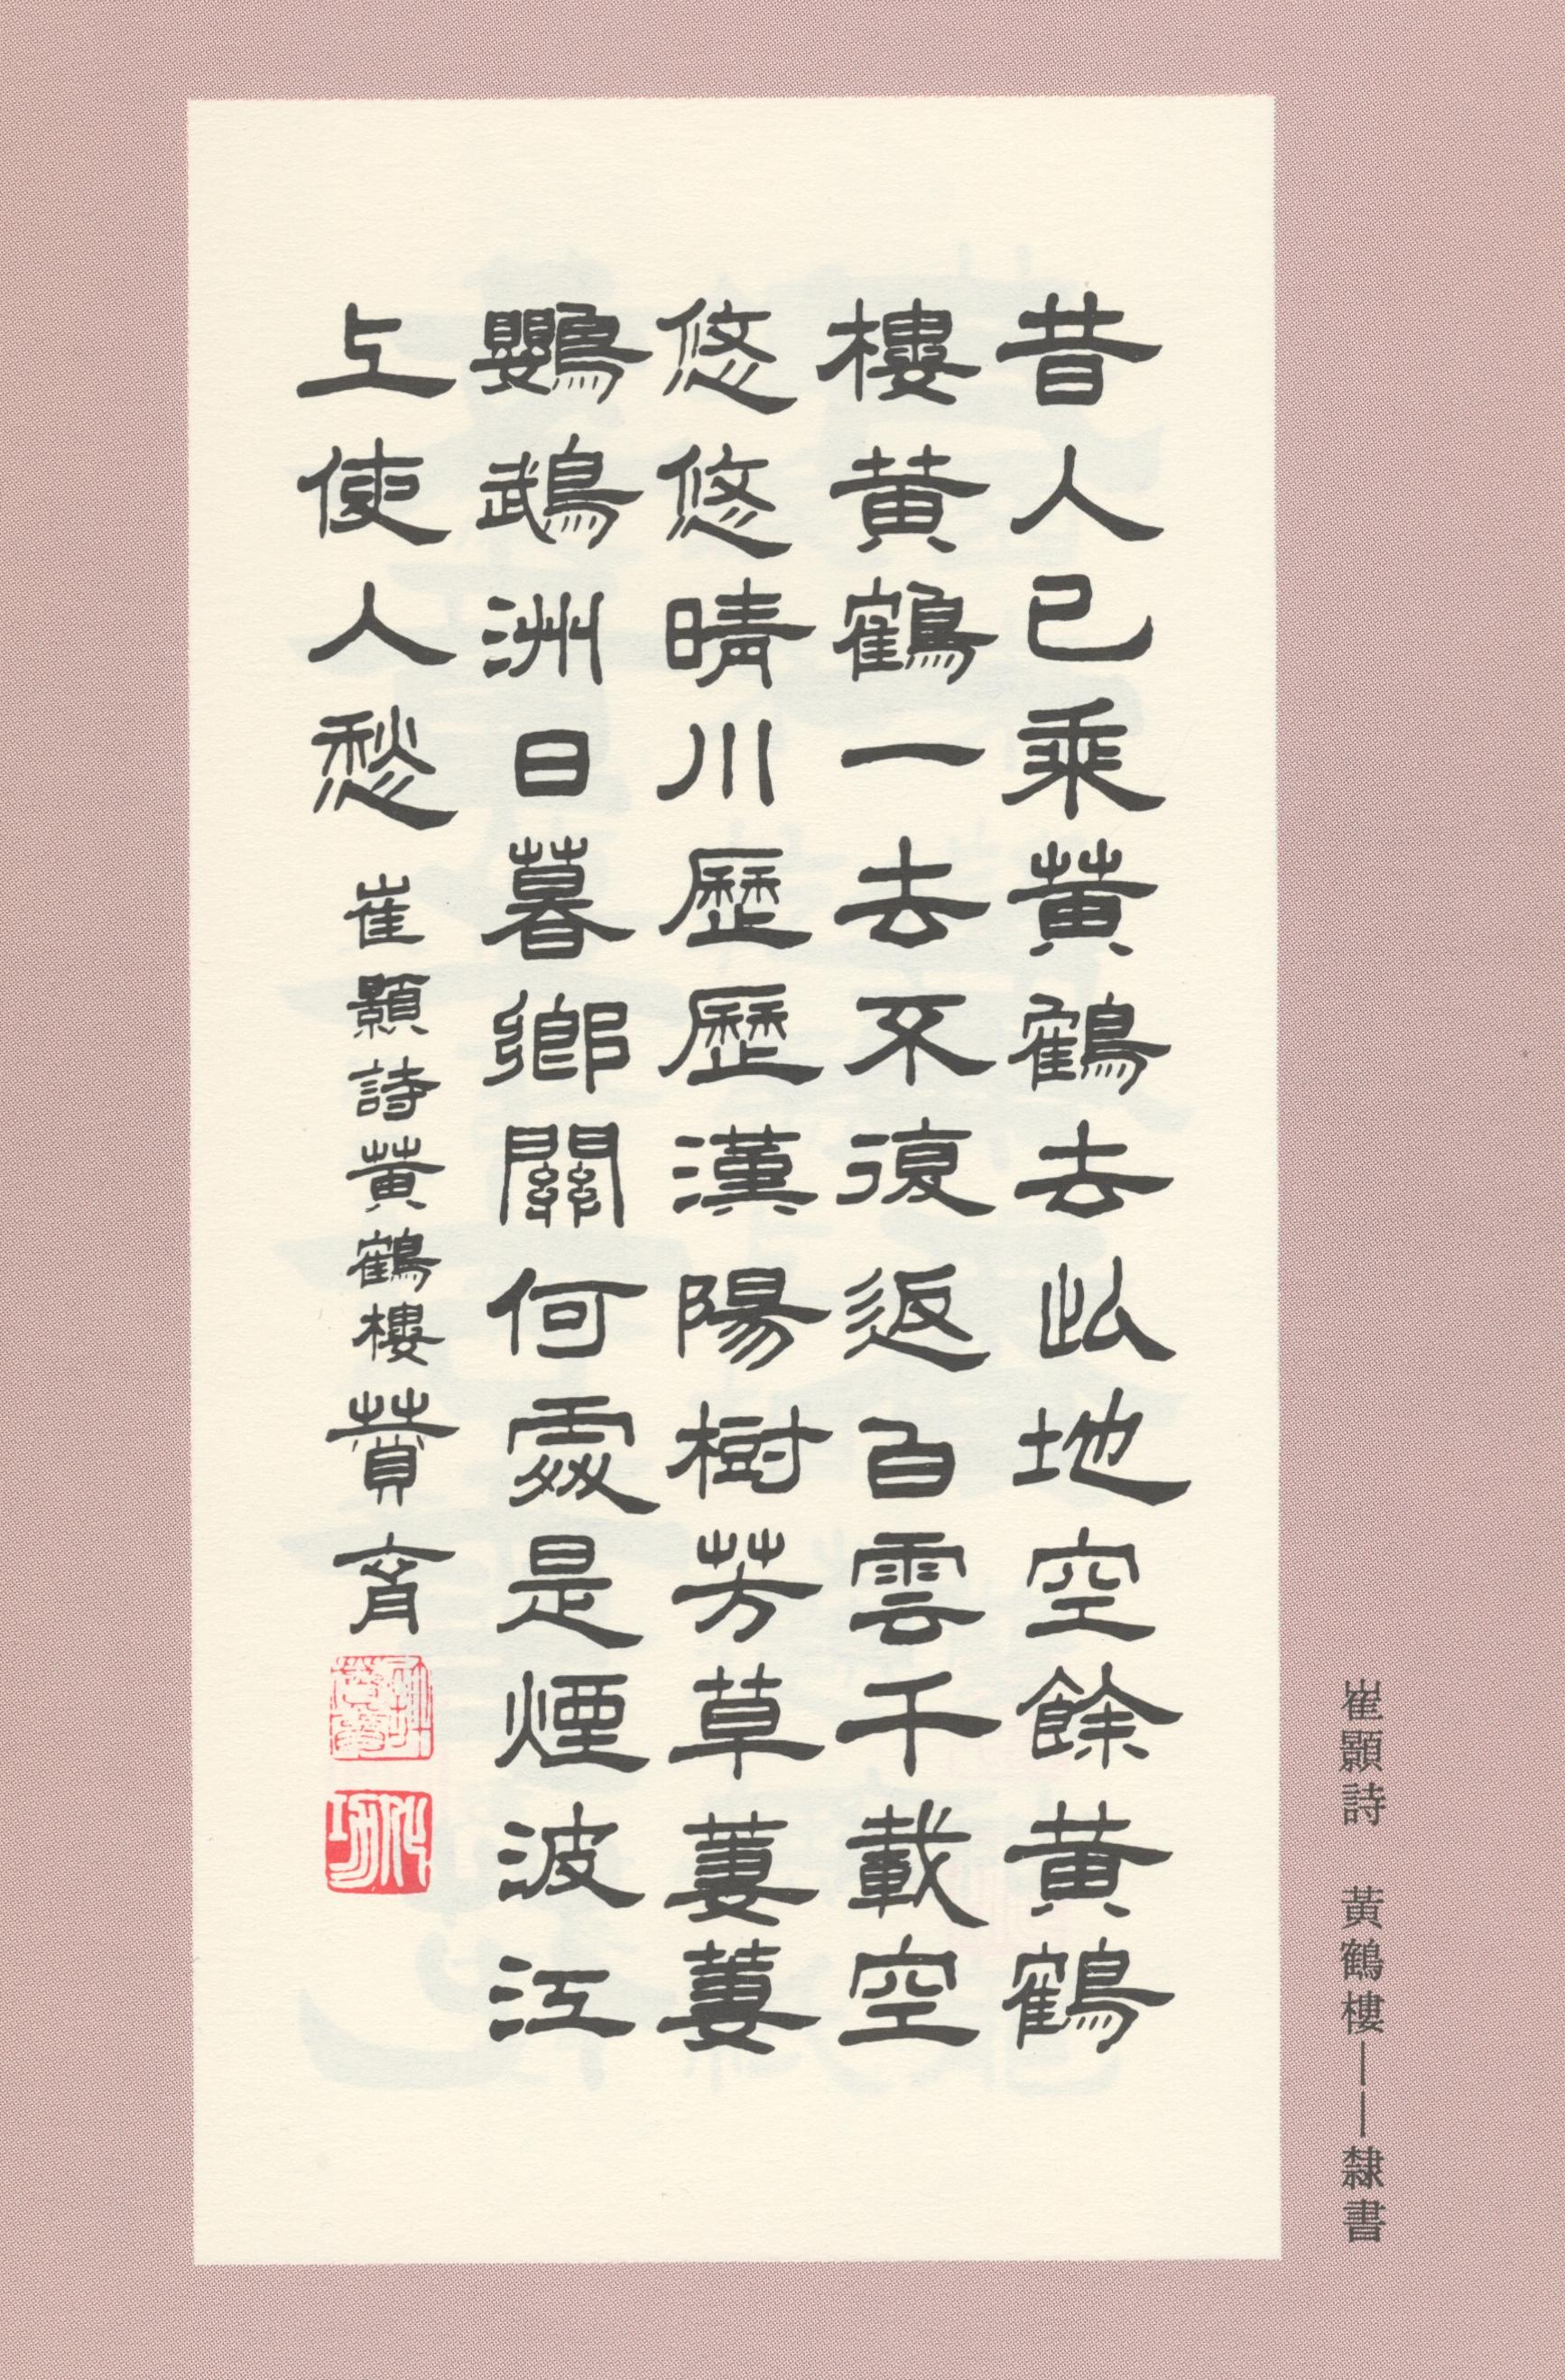 昔人已乘黃鶴去此地空餘黃鶴
樓黃鶴一去不復返白雲千載空
悠悠晴川歷歷漢陽樹芳草萋萋
鸚鵡洲日暮鄉關何處是煙波江
上使人愁 崔顥詩黃鶴樓 育
崔顥詩　黃鶴樓——隸書